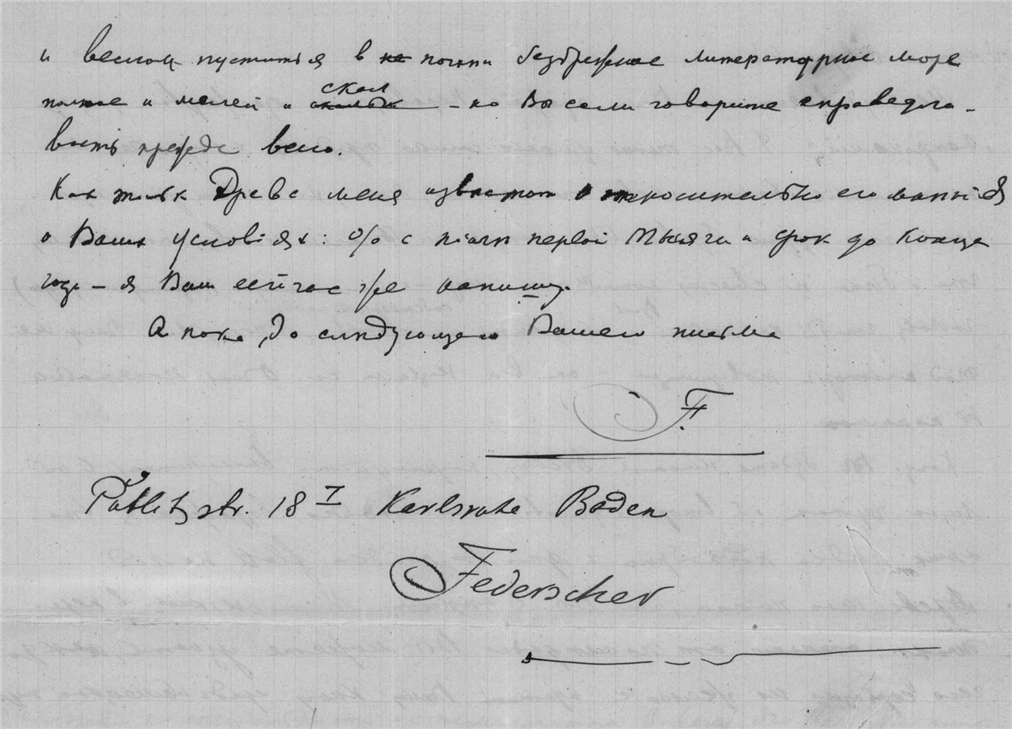 и веслом пуститься в не почти безбрежное литературное море
полное и мелей и скал – но Вы сами говорите справедли-
вость прежде всего.
Как только Древс меня известит относительно его мнѣнія
о Вашихъ условіяхъ: % с первой тысячи и срок до конца
года – я Вам сейчас же напишу.
А пока до слѣдующего Вашего письма
F.
Putlitzstr. 18 I Karlsruhe Baden
Federscher